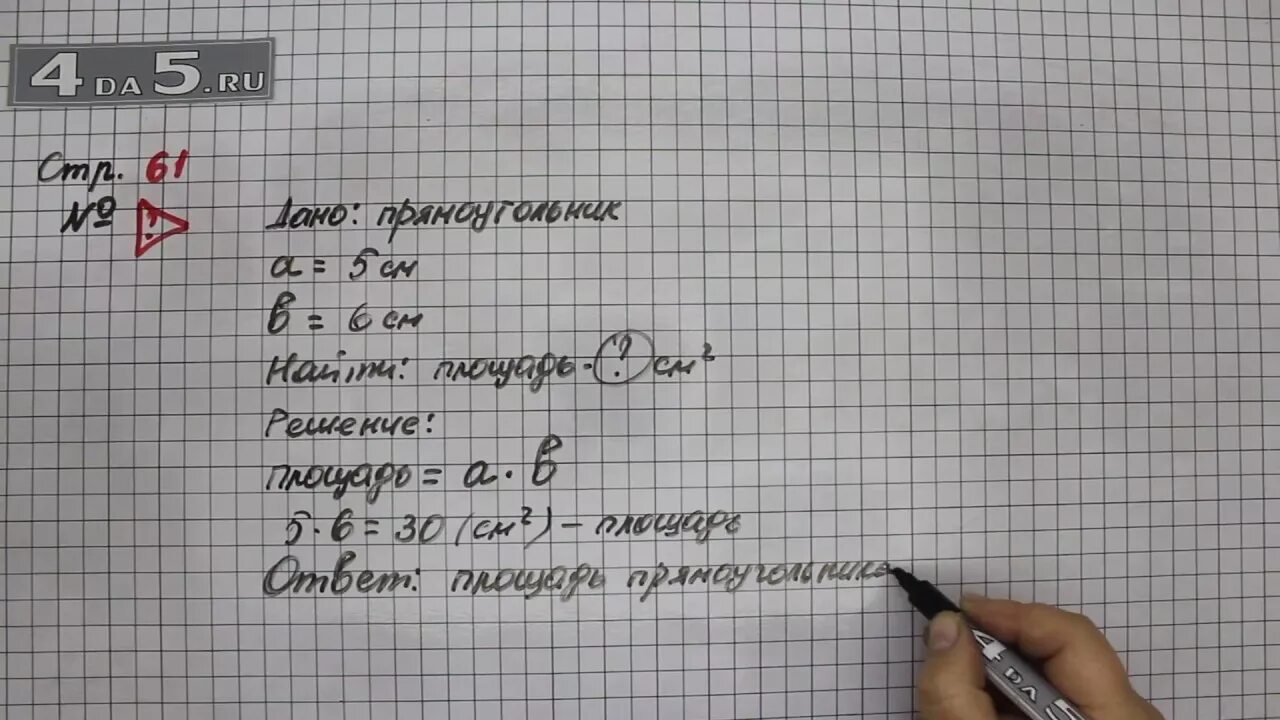 4DA5.RU
Стр. 61
№ ?
Дано: прямоугольник
a = 5 см
b = 6 см
Найти: площадь - ? см²
Решение:
площадь = a · b
5 · 6 = 30 (см²) – площадь
Ответ: площадь прямоугольника
4DA5